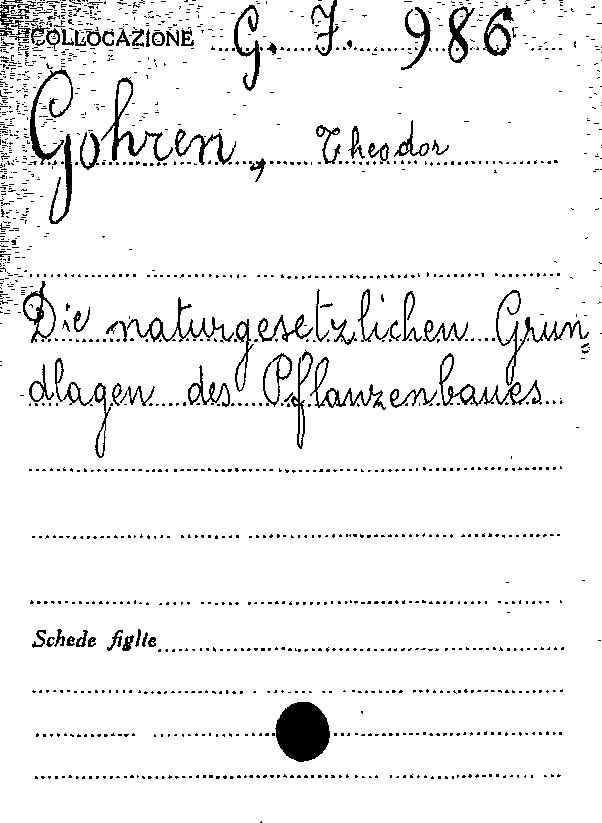 COLLOCAZIONE G. J. 986
Gohren, Theodor
Die naturgesetzlichen Grun=
dlagen des Pflanzenbaues
Schede figlie